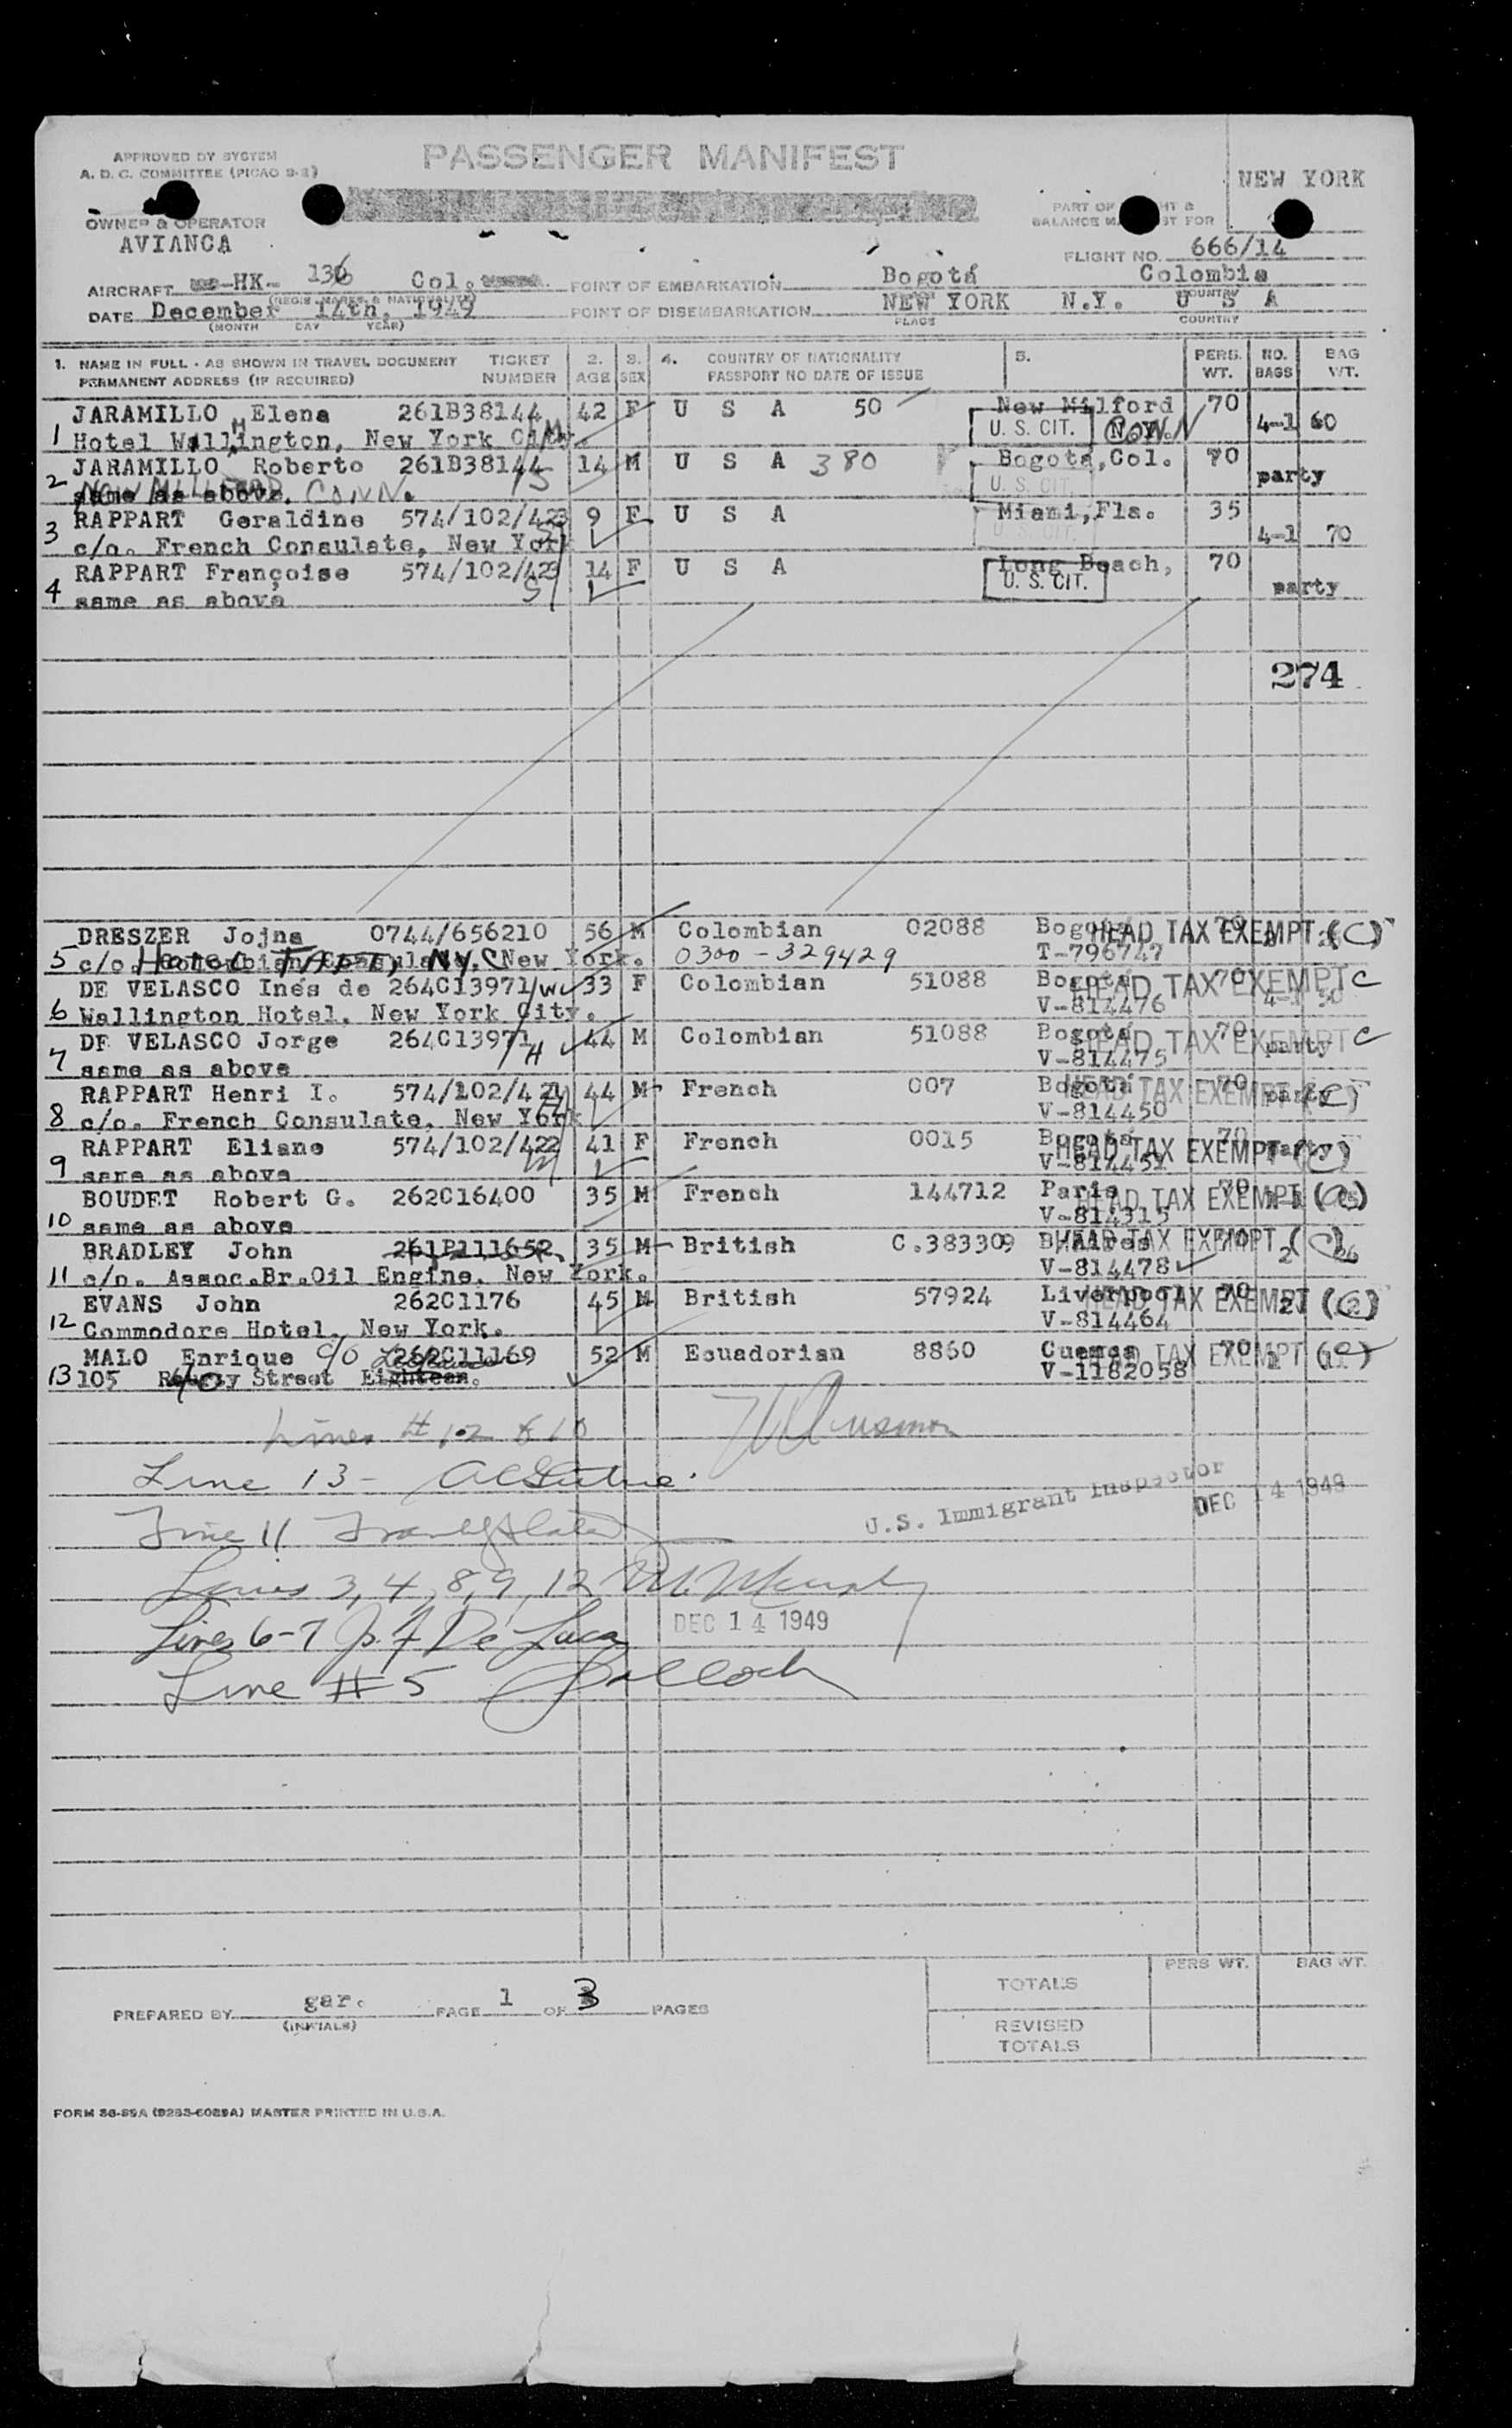 APPROVED BY SYSTEM
A. D. C. COMMITTEE (PICAO 9-2)
PASSENGER MANIFEST
NEW YORK
OWNER & OPERATOR
AVIANCA
PART OF
BALANCE
FOR
FLIGHT NO. 666/14
AIRCRAFT HK- 136 Col. POINT OF EMBARKATION Bogotá Colombia
(REGIS. MARKS & NATIONALITY) COUNTRY
DATE December 14th, 1949 POINT OF DISEMBARKATION NEW YORK N.Y. U S A
(MONTH DAY YEAR) PLACE COUNTRY
1. NAME IN FULL - AS SHOWN IN TRAVEL DOCUMENT TICKET 2. 3. 4. COUNTRY OF NATIONALITY 5. PERS. NO. BAG
PERMANENT ADDRESS (IF REQUIRED) NUMBER AGE SEX PASSPORT NO DATE OF ISSUE WT. BAGS WT.
JARAMILLO Elena 261B38144 42 F U S A 50 New Milford 70
1 Hotel Wellington, New York City. U. S. CIT. N.Y. CONN 4-1 60
JARAMILLO Roberto 261B38144 14 M U S A 380 Bogota,Col. 70
2 same as above. NEW MILFORD CONN. U. S. CIT. party
RAPPART Geraldine 574/102/423 9 F U S A Miami,Fla. 35
3 c/o. French Consulate, New York U. S. CIT. 4-1 70
RAPPART Françoise 574/102/423 14 F U S A Long Beach, 70
4 same as above U. S. CIT. party
274
DRESZER Jojna 0744/656210 56 M Colombian 02088 Bogotá 70 HEAD TAX EXEMPT (C)
5 c/o. Colombian Consulate, New York. HOTEL TAFT, N.Y.C 0300-329429 T-796747
DE VELASCO Inés de 264C13971 W 33 F Colombian 51088 Bogotá 70 HEAD TAX EXEMPT C
6 Wallington Hotel, New York City. V-814476 4-1
DE VELASCO Jorge 264C13971 H 44 M Colombian 51088 Bogotá 70 HEAD TAX EXEMPT C
7 same as above V-814475 party
RAPPART Henri I. 574/102/421 H 44 M French 007 Bogotá 70 HEAD TAX EXEMPT (C)
8 c/o. French Consulate, New York V-814450 party
RAPPART Eliane 574/102/422 41 F French 0015 Bogotá 70 HEAD TAX EXEMPT (C)
9 same as above V-814451 party
BOUDET Robert G. 262C16400 35 M French 144712 Paris 70 HEAD TAX EXEMPT (C)
10 same as above V-814315
BRADLEY John 261P111652 35 M British C.383309 B.Aires 70 HEAD TAX EXEMPT (C)
11 c/o. Assoc.Br.Oil Engine, New York. V-814478 2 26
EVANS John 262C1176 45 M British 57924 Liverpool 70 HEAD TAX EXEMPT (C)
12 Commodore Hotel, New York. V-814464
MALO Enrique c/o 262C11169 52 M Ecuadorian 8860 Cuenca 70 HEAD TAX EXEMPT (C)
13 105 Street Eighteen. V-1182058
Lines # 1-2 & 10
Line 13 -
U.S. Immigrant Inspector DEC 14 1949
Line 11
Lines 3, 4, 8, 9, 12
Lines 6-7 De Luca DEC 14 1949
Line # 5
PERS WT. BAG WT.
TOTALS
PREPARED BY gar. PAGE 1 OF 3 PAGES
(INITIALS)
REVISED
TOTALS
FORM 36-89A (9283-6089A) MASTER PRINTED IN U.S.A.